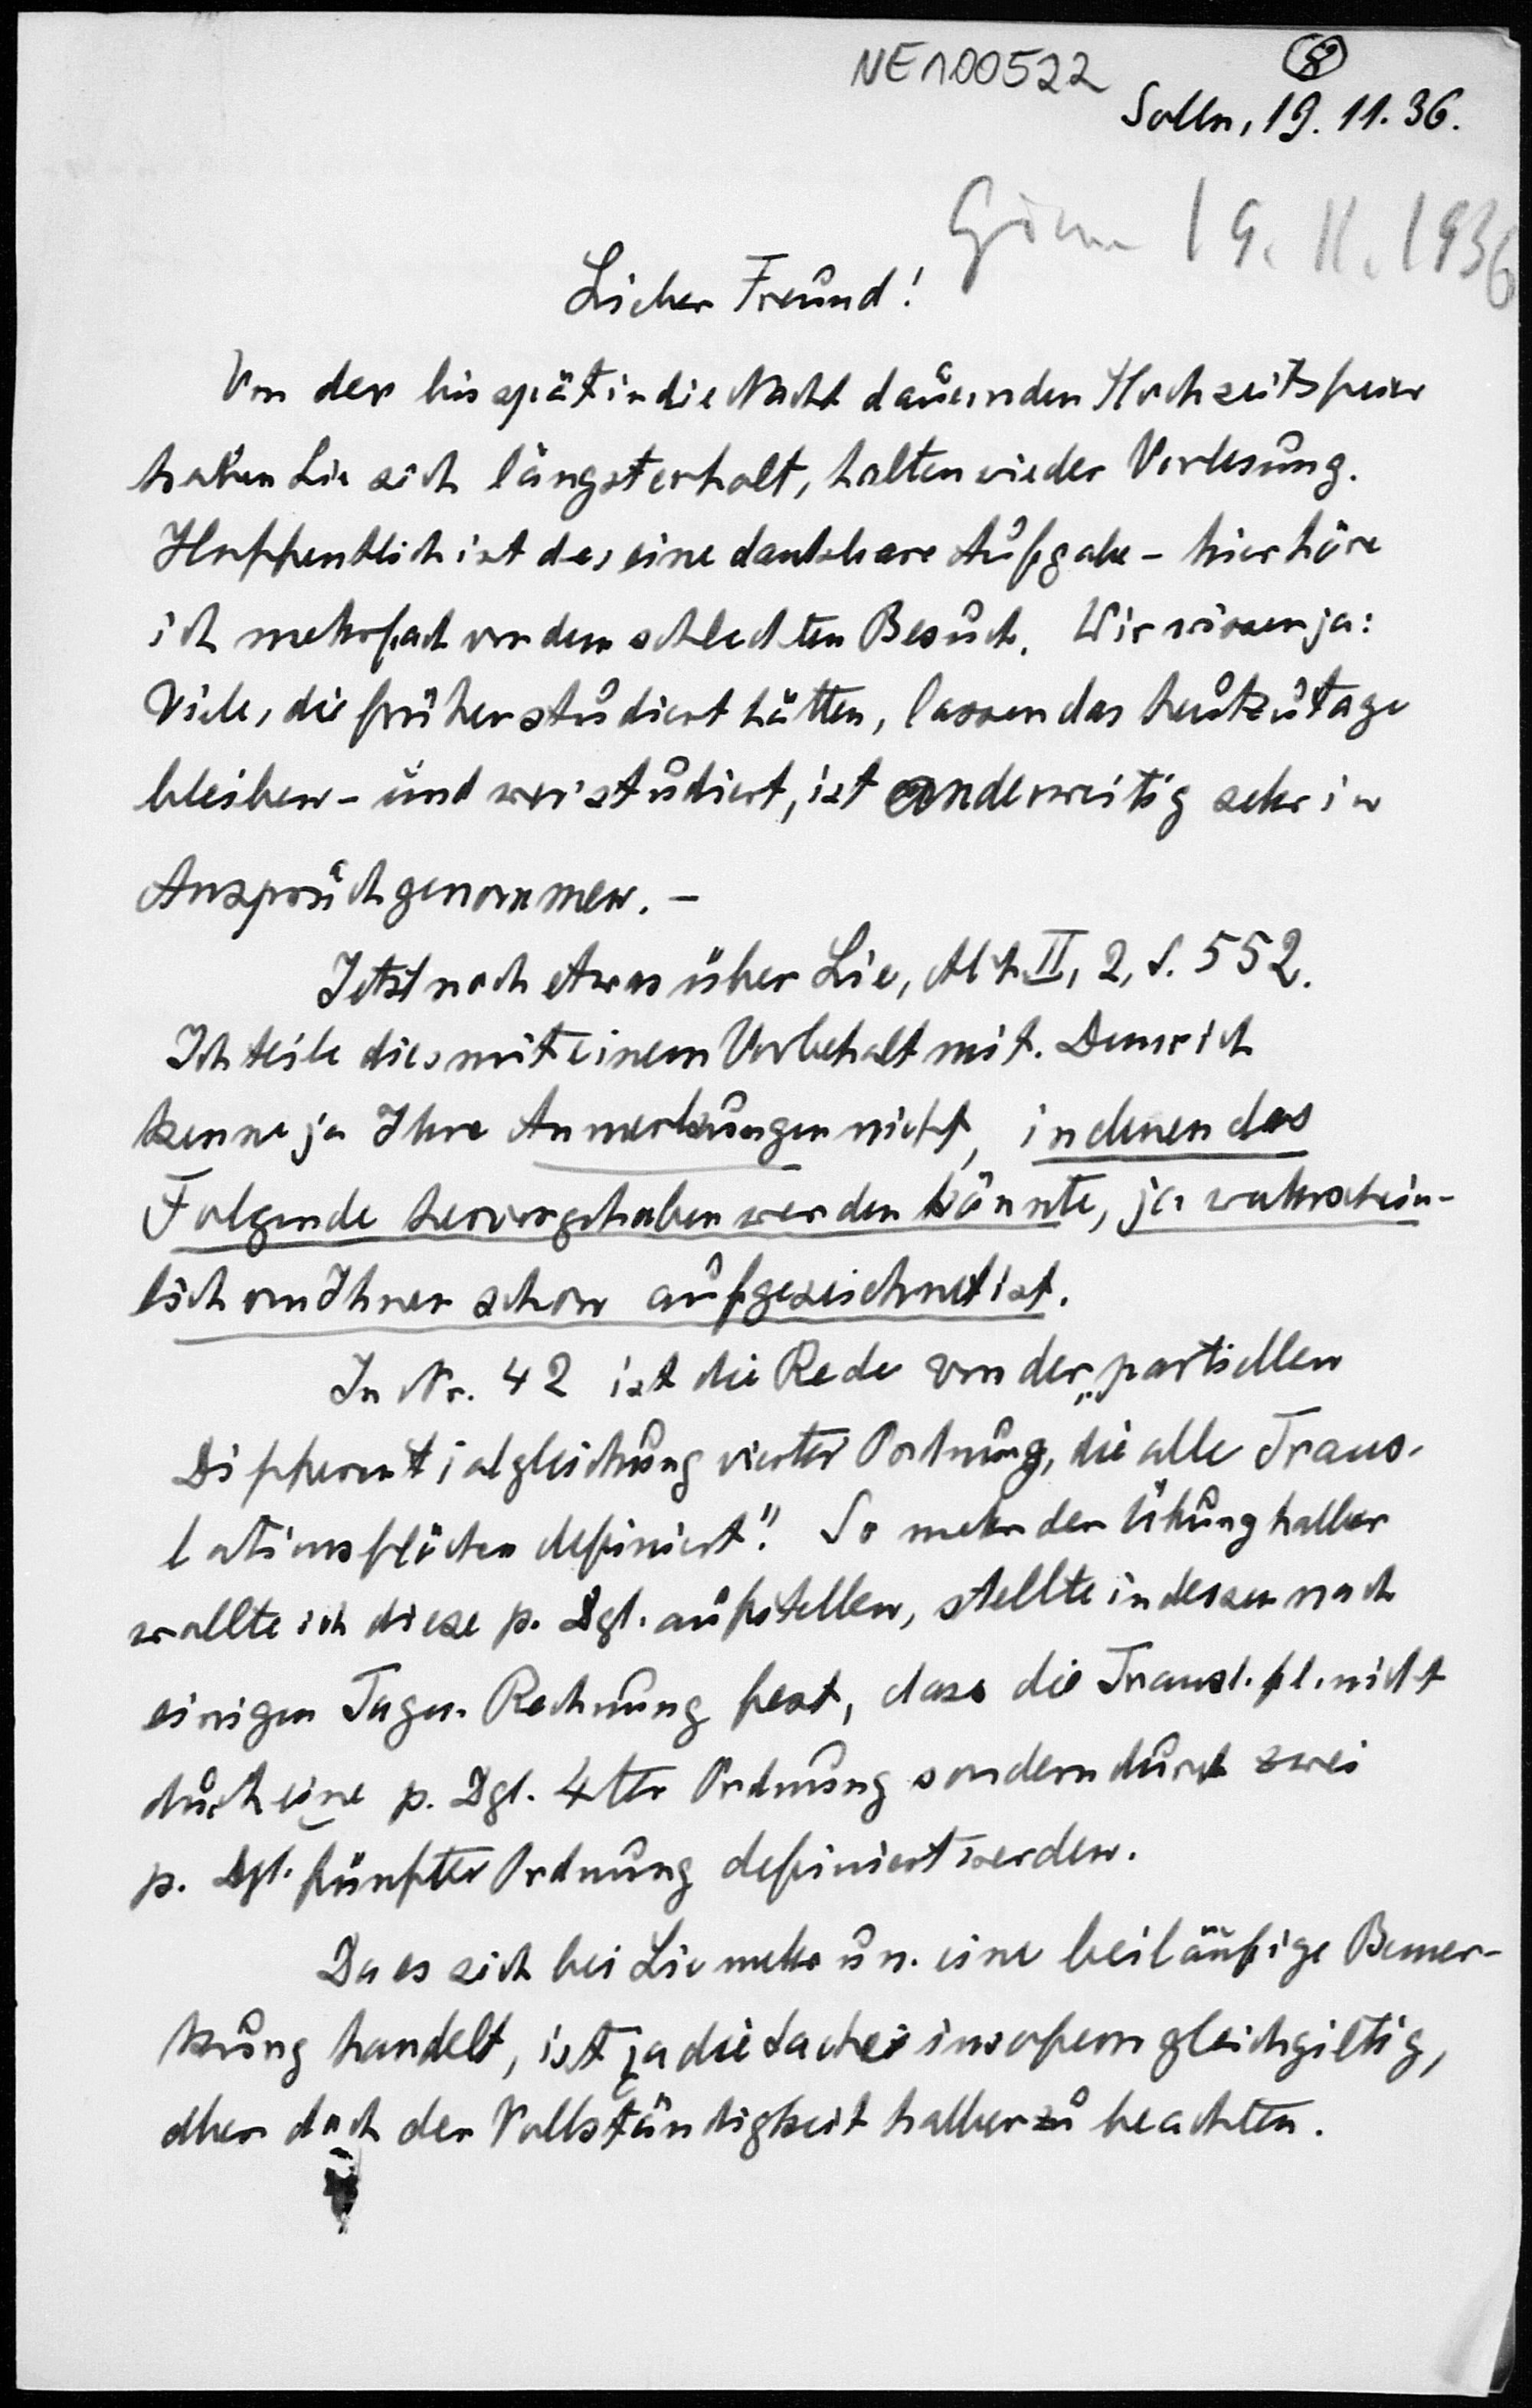 NE100522
8
Solln, 19. 11. 36.
19. 11. 1936
Lieber Freund!
Von der bis spät in die Nacht dauernden Hochzeitsfeier
haben Sie sich längst erholt, halten wieder Vorlesung.
Hoffentlich ist das eine dankbare Aufgabe – hier höre
ich mehrfach von dem schlechten Besuch. Wir wissen ja:
Viele, die früher studiert hätten, lassen das heutzutage
bleiben – und wer studiert, ist anderweitig sehr in
Anspruch genommen. –
Jetzt noch etwas über Lie, Abh. II, 2, S. 552.
Ich teile dies mit einem Vorbehalt mit. Denn ich
kenne ja Ihre Anmerkungen nicht, in denen das
Folgende hervorgehoben werden könnte, ja wahrschein-
lich von Ihnen schon aufgezeichnet ist.
In Nr. 42 ist die Rede von der „partiellen
Differentialgleichung vierter Ordnung, die alle Trans-
lationsflächen definiert". So mehr der Übung halber
wollte ich diese p. Dgl. aufstellen, stellte indessen nach
einigen Tagen Rechnung fest, dass die Transl. fl. nicht
durch eine p. Dgl. 4ter Ordnung sondern durch zwei
p. Dgl. fünfter Ordnung definiert werden.
Da es sich bei Lie mehr um eine beiläufige Bemer-
kung handelt, ist ja die Sache insofern gleichgiltig,
aber doch der Vollständigkeit halber zu beachten.